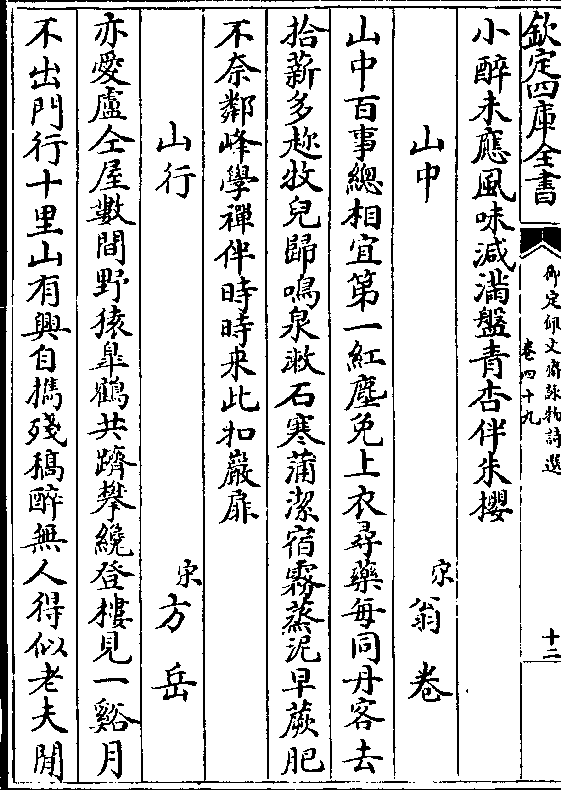 欽定四庫全書
御定佩文齋詠物詩選
卷四十九
十二
小醉未應風味減滿盤青杏伴朱櫻
山中
宋翁卷
山中百事總相宜第一紅塵免上衣尋藥每同丹客去
拾薪多趂牧兒歸鳴泉漱石寒蒲潔宿霧蒸泥早蕨肥
不奈鄰峰學禪伴時時來此扣巖扉
山行
宋方岳
亦愛廬仝屋數間野猿臯鶴共躋攀纔登樓見一谿月
不出門行十里山有興自攜殘稿醉無人得似老夫閒